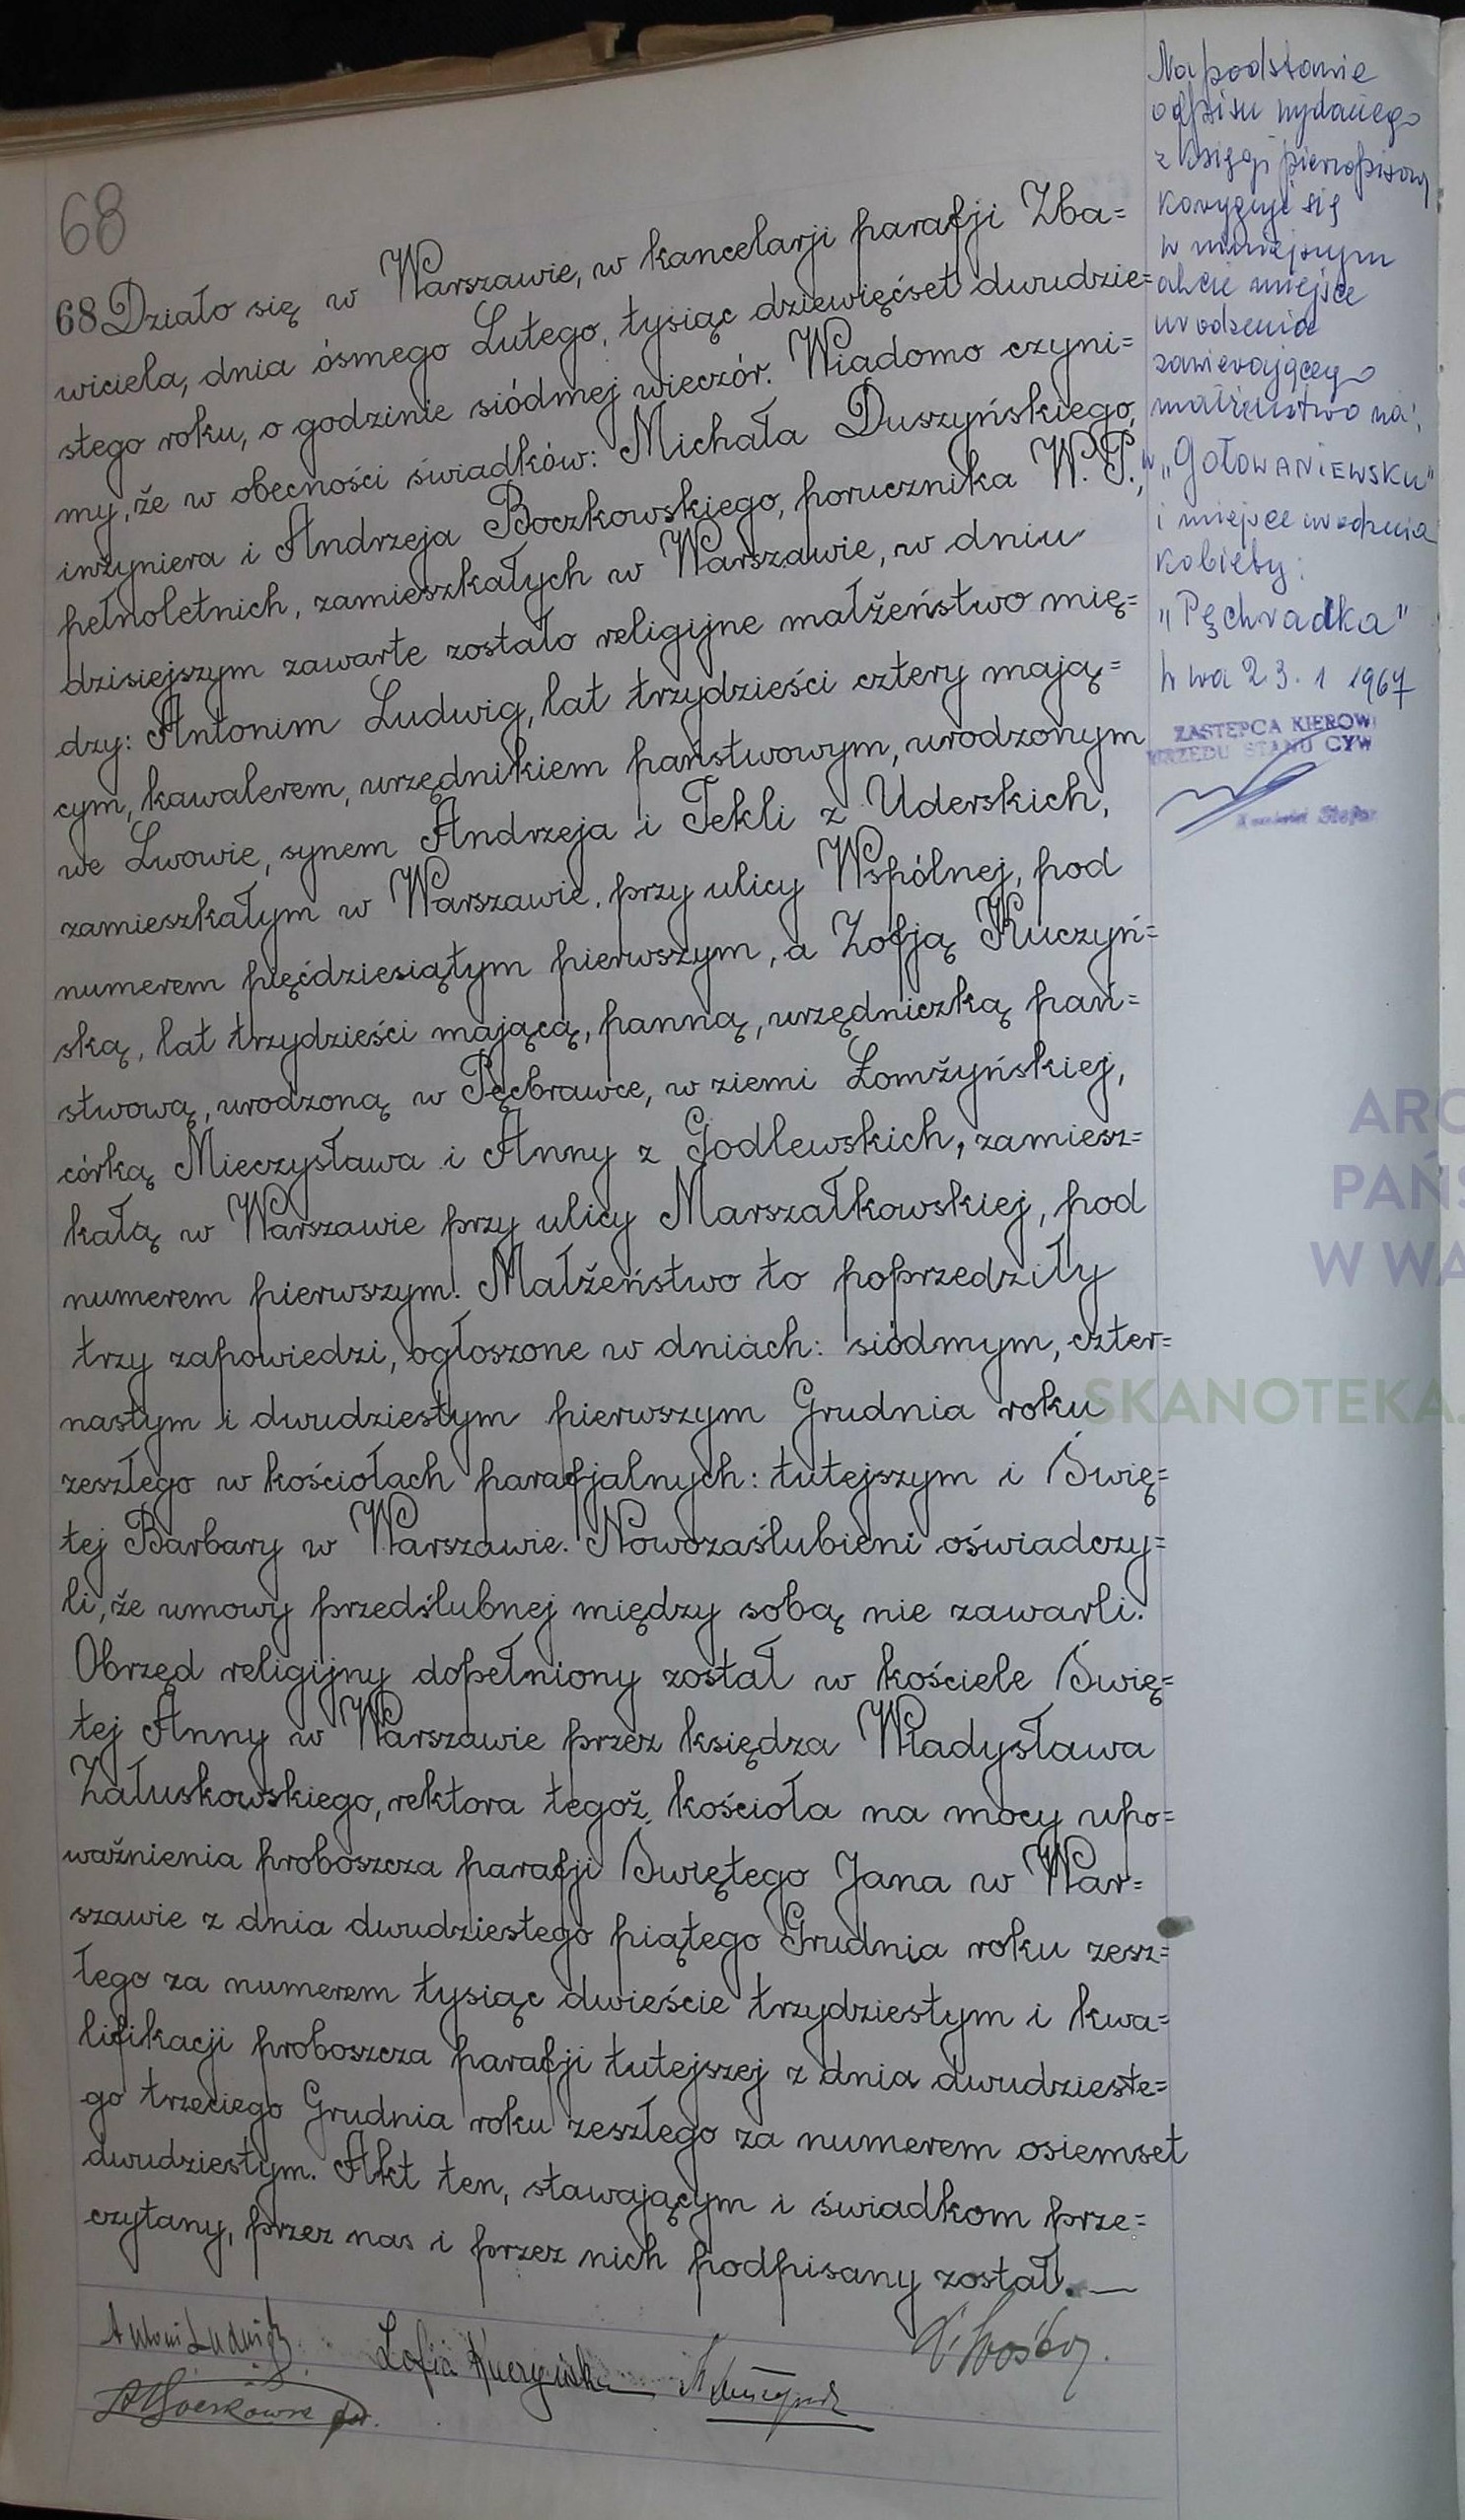 68
68 Działo się w Warszawie, w kancelarji parafji Zba=
wiciela, dnia ósmego Lutego, tysiąc dziewięćset dwudzie=
stego roku, o godzinie siódmej wieczór. Wiadomo czyni=
my, że w obecności świadków: Michała Duszyńskiego,
inżyniera i Andrzeja Boczkowskiego, porucznika W. P.,
pełnoletnich, zamieszkałych w Warszawie, w dniu
dzisiejszym zawarte zostało religijne małżeństwo mię=
dzy: Antonim Ludwig, lat trzydzieści cztery mają=
cym, kawalerem, urzędnikiem państwowym, urodzonym
we Lwowie, synem Andrzeja i Tekli z Uderskich,
zamieszkałym w Warszawie, przy ulicy Wspólnej, pod
numerem pięćdziesiątym pierwszym, a Zofją Kuczyń=
ską, lat trzydzieści mającą, panną, urzędniczką pań=
stwową, urodzoną w Pęcbrawce, w ziemi Łomżyńskiej,
córką Mieczysława i Anny z Godlewskich, zamiesz=
kałą w Warszawie przy ulicy Marszałkowskiej, pod
numerem pierwszym. Małżeństwo to poprzedziły
trzy zapowiedzi, ogłoszone w dniach: siódmym, czter=
nastym i dwudziestym pierwszym Grudnia roku
zeszłego w kościołach parafjalnych: tutejszym i Świę=
tej Barbary w Warszawie. Nowozaślubieni oświadczy=
li, że umowy przedślubnej między sobą nie zawarli.
Obrzęd religijny dopełniony został w kościele Świę=
tej Anny w Warszawie przez księdza Władysława
Załuskowskiego, rektora tegoż kościoła na mocy upo=
ważnienia proboszcza parafji Świętego Jana w War=
szawie z dnia dwudziestego piątego Grudnia roku zesz=
łego za numerem tysiąc dwieście trzydziestym i kwa=
lifikacji proboszcza parafji tutejszej z dnia dwudzieste=
go trzeciego Grudnia roku zeszłego za numerem osiemset
dwudziestym. Akt ten, stawającym i świadkom prze=
czytany, przez nas i przez nich podpisany został.—
Antoni Ludwig
Zofia Kuczyńska
Na podstawie
odpisu wydanego
z księgi pierwopisowej
koryguje się
w niniejszym
akcie miejsce
urodzenia
zawierającego
małżeństwo na:
w „GOŁOWANIEWSKU"
i miejsce urodzenia
kobiety:
„Pęchradka"
W-wa 23. 1 1967
ZASTĘPCA KIEROW
URZĘDU STANU CYW
ARC
PAŃS
W WA
SKANOTEKA.